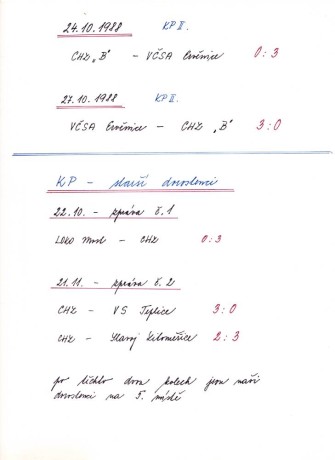 24.10.1988 KP II.
CHZ „B" – VČSA Ervěnice 0:3
27.10.1988 KP II.
VČSA Ervěnice – CHZ „B" 3:0
KP – starší dorostenci
22.10. – zpráva č.1
LOKO Most – CHZ 0:3
21.11. – zpráva č.2
CHZ – VS Teplice 3:0
CHZ – Slavoj Litoměřice 2:3
po těchto dvou kolech jsou naši
dorostenci na 5. místě